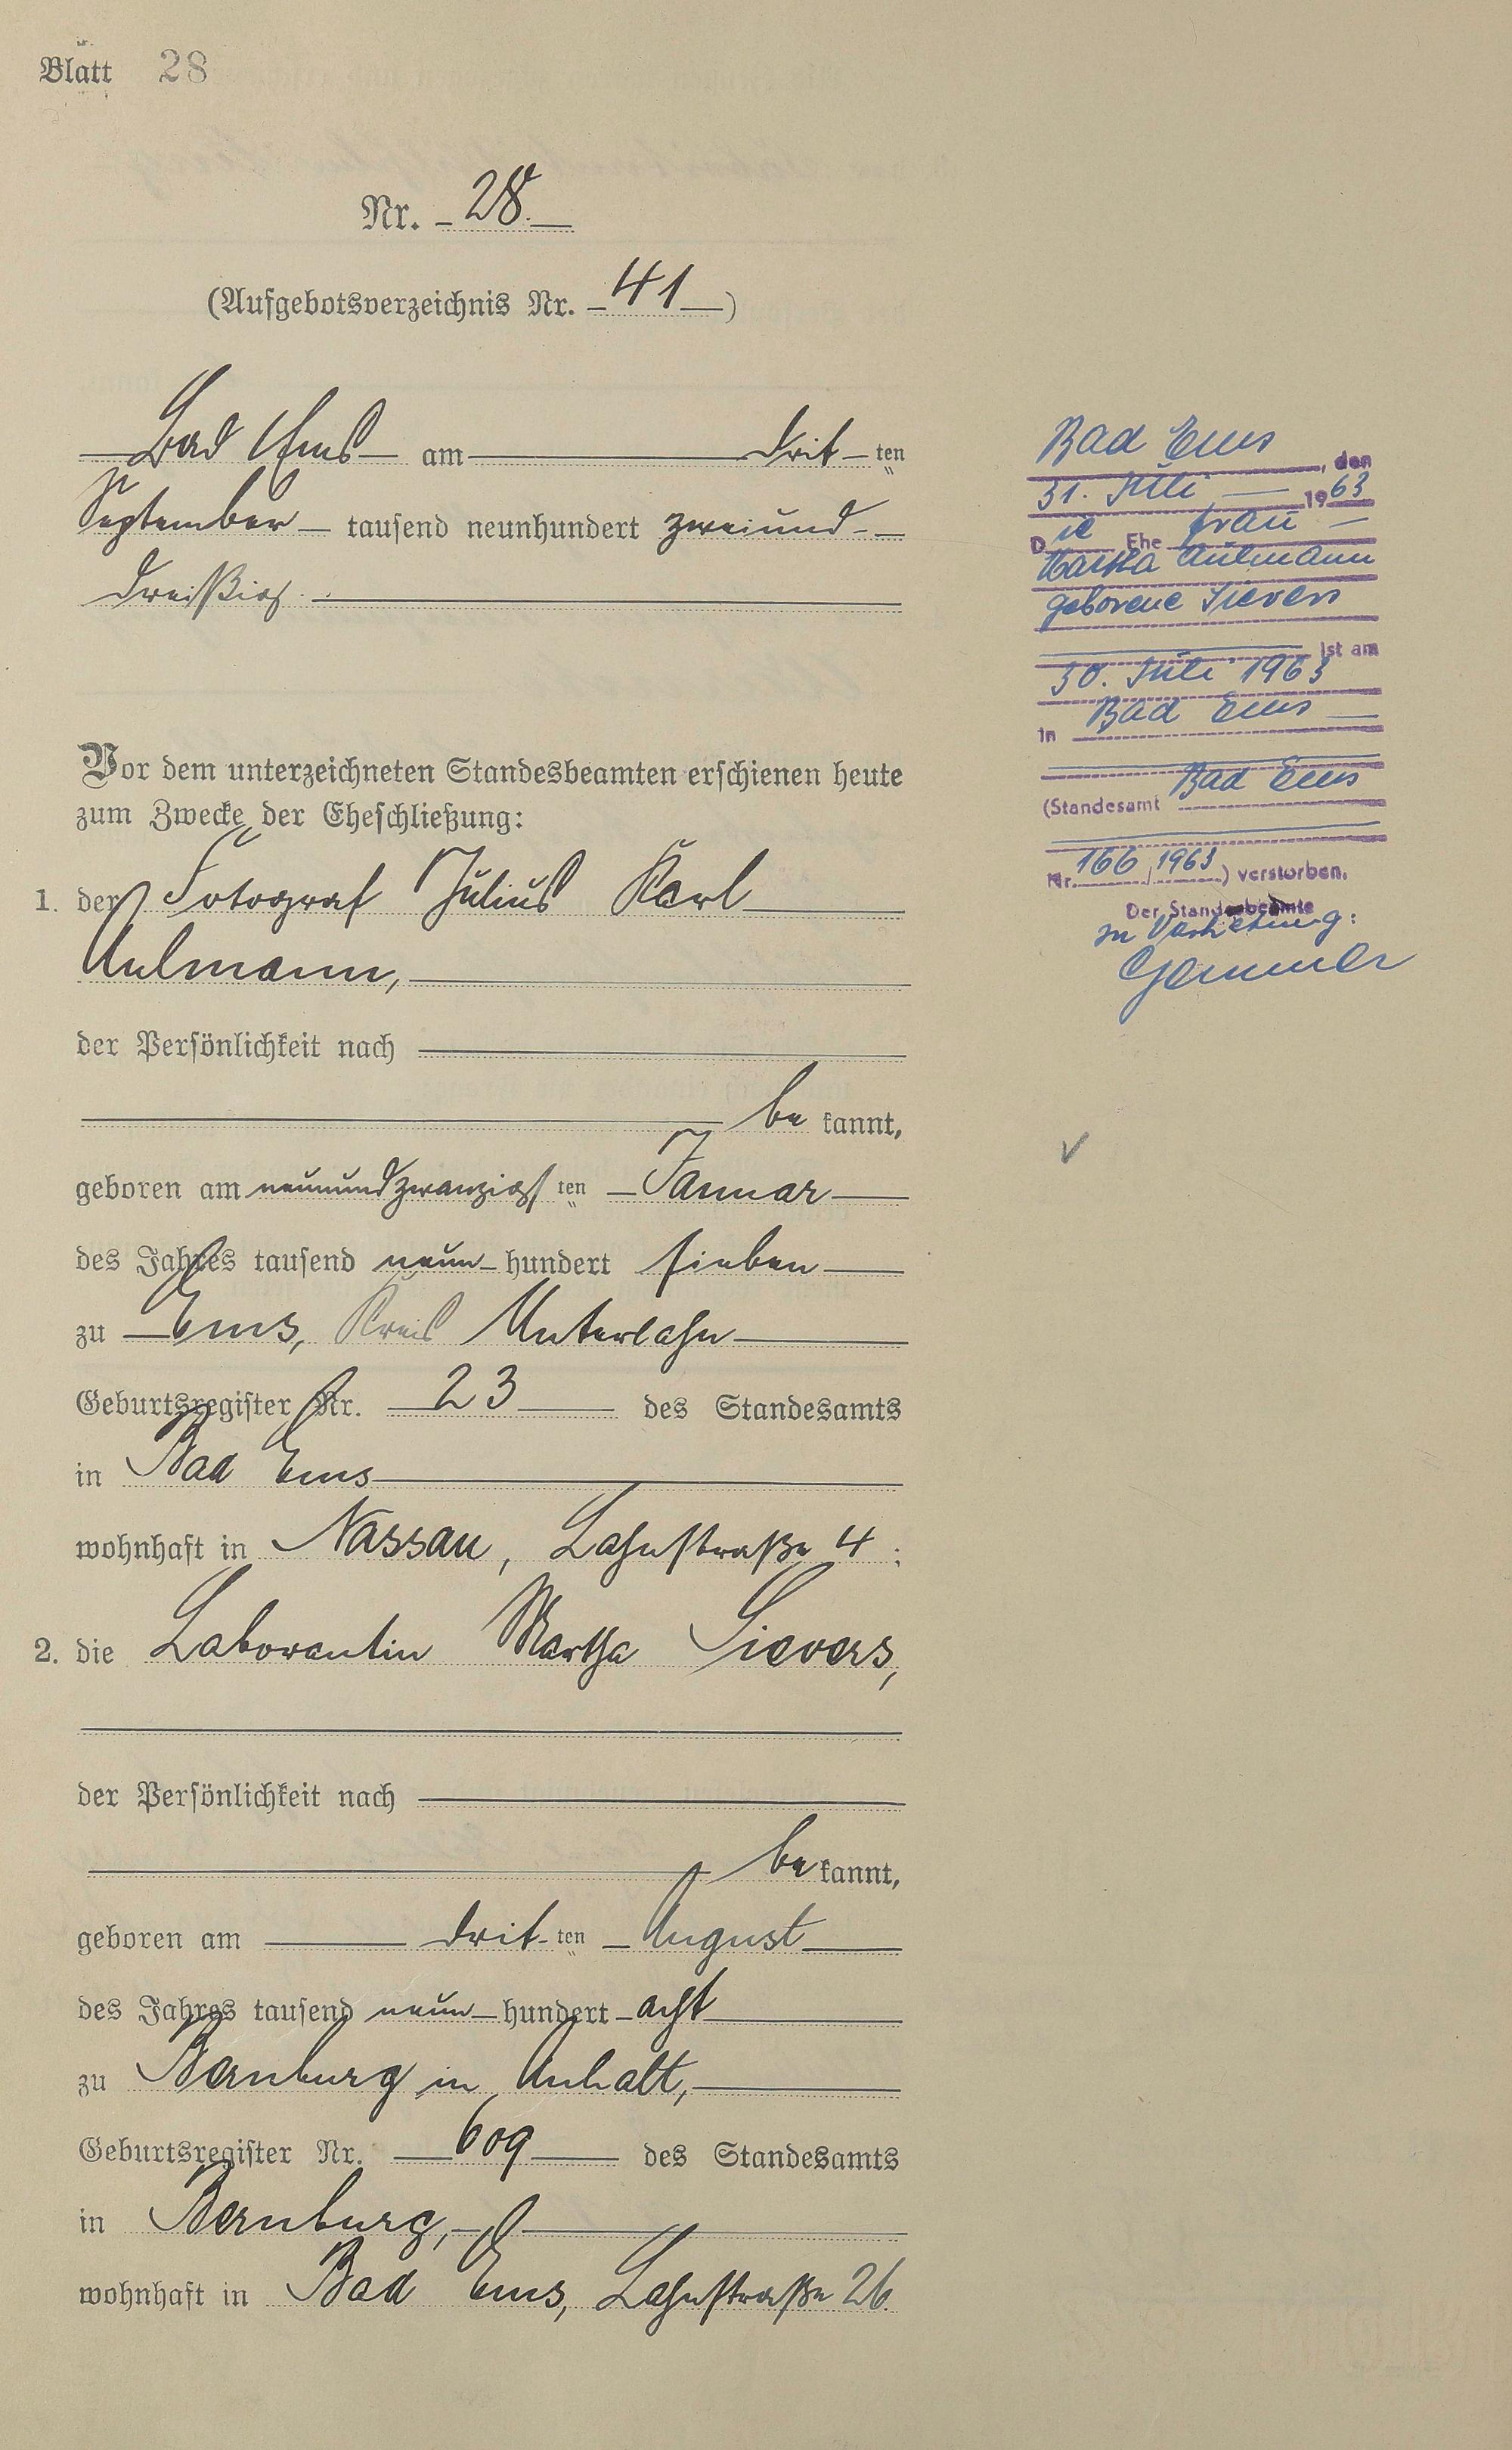 Blatt 28
Nr. 28.
(Aufgebotsverzeichnis Nr. 41)
Bad Ems am drit ten
September tausend neunhundert zweiund-
dreißig.
Vor dem unterzeichneten Standesbeamten erschienen heute
zum Zwecke der Eheschließung:
1. der Fotograf Julius Karl
Aulmann,
der Persönlichkeit nach
be kannt,
geboren am neunundzwanzigs ten Januar
des Jahres tausend neun hundert sieben
zu Ems, Kreis Unterlahn
Geburtsregister Nr. 23 des Standesamts
in Bad Ems
wohnhaft in Nassau, Lahnstraße 4;
2. die Laborantin Martha Sievers,
der Persönlichkeit nach
be kannt,
geboren am drit ten August
des Jahres tausend neun hundert acht
zu Bernburg in Anhalt,
Geburtsregister Nr. 609 des Standesamts
in Bernburg,
wohnhaft in Bad Ems, Lahnstraße 26.
Bad Ems, den
31. Juli 1963
Die Ehe frau
Martha Aulmann
geborene Sievers
ist am
30. Juli 1963
in Bad Ems
(Standesamt Bad Ems
Nr. 166 / 1963) verstorben.
Der Standesbeamte
In Vertretung: